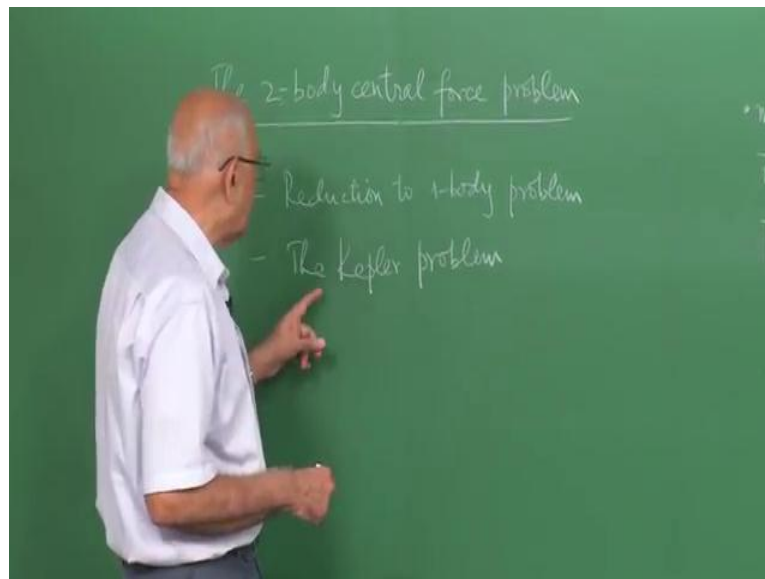 The 2-body central force problem
- Reduction to 1-body problem
- The Kepler problem